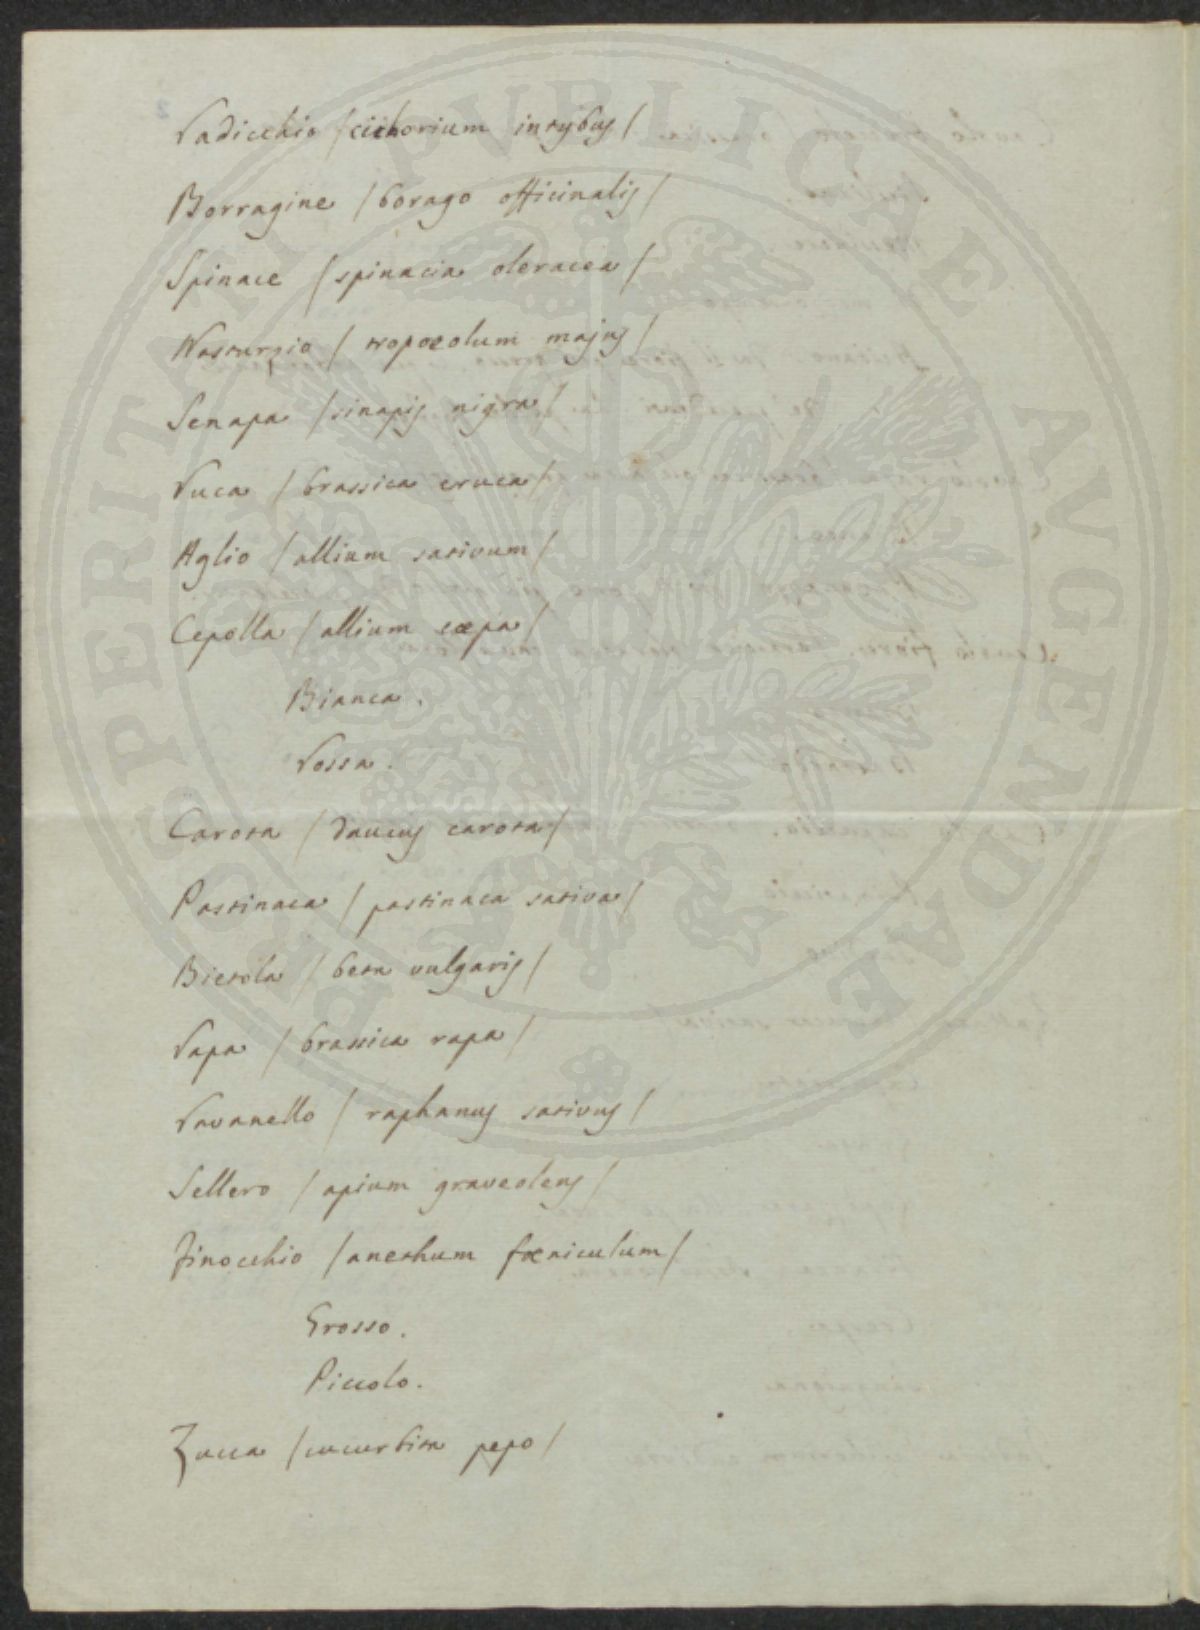 Radicchio /cichorium intybus/
Borragine /borago officinalis/
Spinace /spinacia oleracea/
Nasturzio /tropœolum majus/
Senapa /sinapis nigra/
Ruca /brassica eruca/
Aglio /allium sativum/
Cepolla /allium cœpa/
Bianca.
Rossa.
Carota /daucus carota/
Pastinaca /pastinaca sativa/
Bietola /beta vulgaris/
Rapa /brassica rapa/
Ravanello /raphanus sativus/
Sellero /apium graveolens/
Finocchio /anethum fœniculum/
Grosso.
Piccolo.
Zucca /cucurbita pepo/
PROSPERITATI PVBLICAE AVGENDAE